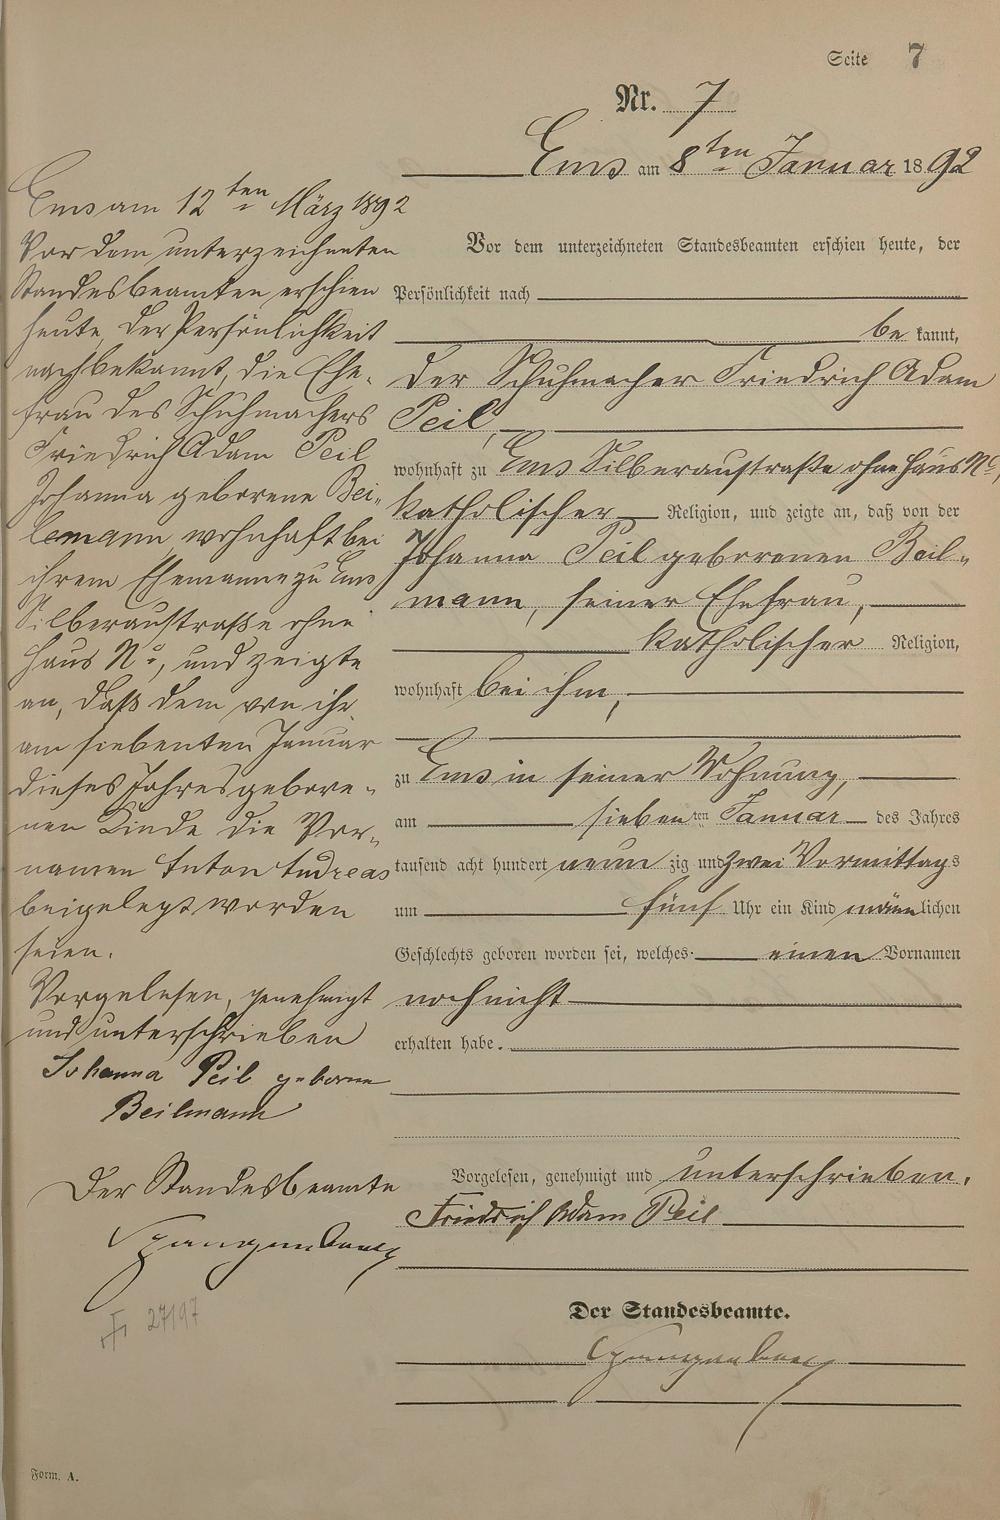 Seite 7
Nr. 7
Ems am 8ten Januar 1892
Vor dem unterzeichneten Standesbeamten erschien heute, der
Persönlichkeit nach
be kannt,
der Schuhmacher Friedrich Adam
Peil,
wohnhaft zu Ems Silberaustraße ohne Haus No,
katholischer Religion, und zeigte an, daß von der
Johanna Peil geborenen Beil-
mann, seiner Ehefrau,
katholischer Religion,
wohnhaft bei ihm,
zu Ems in seiner Wohnung,
am siebenten Januar des Jahres
tausend acht hundert neun zig und zwei Vormittags
um fünf Uhr ein Kind männlichen
Geschlechts geboren worden sei, welches einen Vornamen
noch nicht
erhalten habe.
Vorgelesen, genehmigt und unterschrieben.
Friedrich Adam Peil
Der Standesbeamte.
Ems am 12ten März 1892
Vor dem unterzeichneten
Standesbeamten erschien
heute, der Persönlichkeit
nach bekannt, die Ehe-
frau des Schuhmachers
Friedrich Adam Peil
Johanna geborene Bei-
lemann, wohnhaft bei
ihrem Ehemanne zu Ems
Silberaustraße ohne
Haus No, und zeigte
an, daß dem von ihr
am siebenten Januar
dieses Jahres gebore-
nen Kinde die Vor-
namen Anton Andreas
beigelegt worden
seien.
Vorgelesen, genehmigt
und unterschrieben
Johanna Peil geborne
Beilmann
Der Standesbeamte
27197
Form. A.